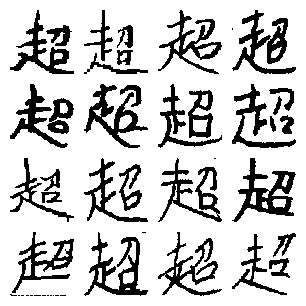 超超超超
超超超超
超超超超
超超超超